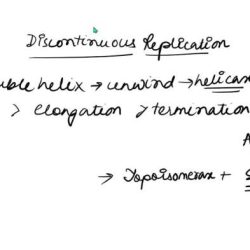 Discontinuous Replication
uble helix → unwind → helicas
> elongation > termination
A
→ Topoisomerax + S